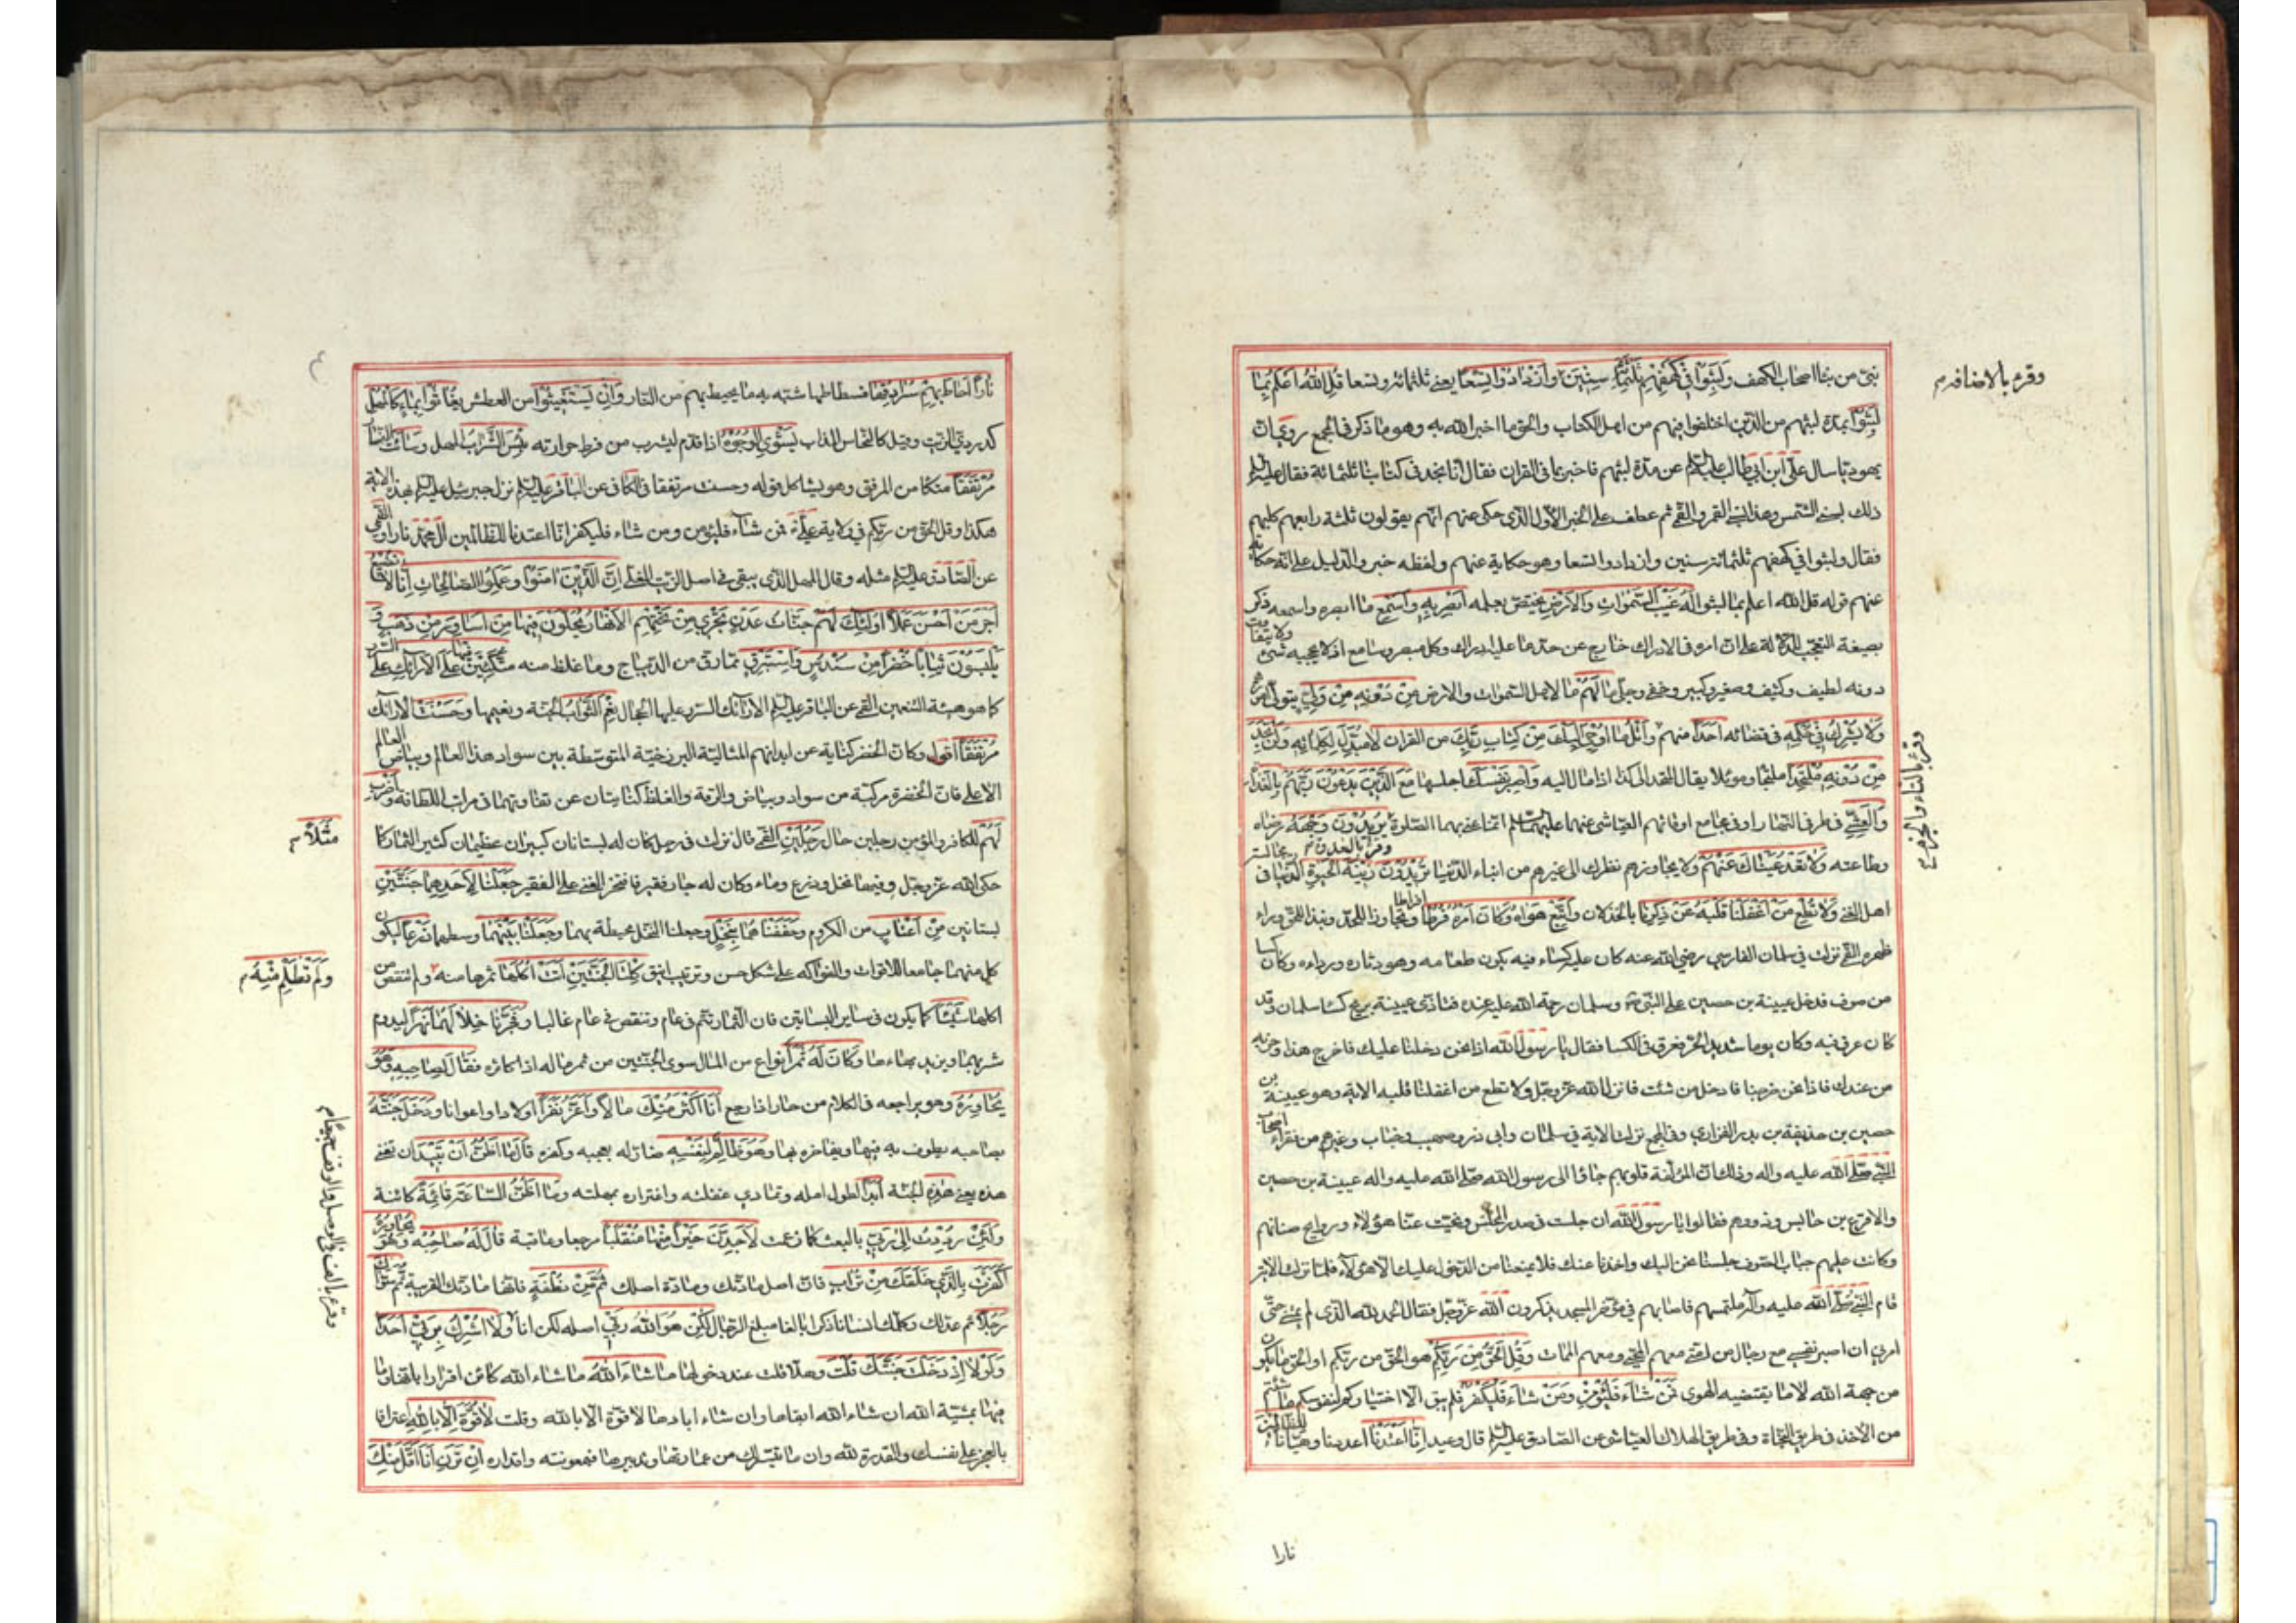 نبئ من نبأ اصحاب الكهف وَلَبِثُوا فِي كَهْفِهِمْ ثَلٰثَمِائَةٍ سِنِينَ وَازْدَادُوا تِسْعًا يعني ثلثمائة وتسعا قُلِ اللّٰهُ اَعْلَمُ بِمَا
وقرء بالاضافة م
لَبِثُوا بمدة لبثهم من الذين اختلفوا فيهم من اهل الكتاب والحق ما اخبر الله به وهو ما ذكر في المجمع روي ان
يهوديا سال علي ابن ابي طالب عليه السلام عن مدة لبثهم فاخبر بما في القران فقال انا نجد في كتابنا ثلثمائة فقال عليه السلام
ذلك بسني الشمس وهذا بسني القمر والقمي ثم عطف على الخبر الاول الذي حكى عنهم انهم يقولون ثلثة رابعهم كلبهم
فقال ولبثوا في كهفهم ثلثمائة سنين وازدادوا تسعا وهو حكاية عنهم ولفظه خبر والدليل على انه حكاية
عنهم قوله قل الله اعلم بما لبثوا لَهُ غَيْبُ السَّمٰوَاتِ وَالْاَرْضِ يختص بعلمه اَبْصِرْ بِهِ وَاَسْمِعْ ما ابصره واسمعه ذكر
بصيغة التعجب للدلالة على ان امره في الادراك خارج عن حد ما عليه ادراك وكل مبصر وسامع اذ لا يحجبه شئ ولا يتفاوت
دونه لطيف وكثيف وصغير وكبير وخفي وجلي مَا لَهُمْ ما لاهل السموات والارض مِنْ دُونِهِ مِنْ وَلِيٍّ يتولى امرهم
وَلَا يُشْرِكُ فِي حُكْمِهِ في قضائه اَحَدًا منهم وَاتْلُ مَا اُوحِيَ اِلَيْكَ مِنْ كِتَابِ رَبِّكَ من القران لَا مُبَدِّلَ لِكَلِمَاتِهِ وَلَنْ تَجِدَ
وقرء بالتاء والجزم م
مِنْ دُونِهِ مُلْتَحَدًا ملتجا وموئلا يقال التحد الى كذا اذا مال اليه وَاصْبِرْ نَفْسَكَ احبسها مَعَ الَّذِينَ يَدْعُونَ رَبَّهُمْ بِالْغَدَاةِ
وَالْعَشِيِّ في طرفي النهار او في مجامع اوقاتهم العياشي عنهما عليهما السلام انما عنى بهما الصلوة يُرِيدُونَ وَجْهَهُ رضاه
وقرء بالغدوة م
وطاعته وَلَا تَعْدُ عَيْنَاكَ عَنْهُمْ ولا يجاوزهم نظرك الى غيرهم من ابناء الدنيا تُرِيدُ زِينَةَ الْحَيٰوةِ الدُّنْيَا في مجالسة
اهل الغنى وَلَا تُطِعْ مَنْ اَغْفَلْنَا قَلْبَهُ عَنْ ذِكْرِنَا بالخذلان وَاتَّبَعَ هَوَاهُ وَكَانَ اَمْرُهُ فُرُطًا افراطا وتجاوزا للحد ونبذا للحق وراء
ظهره القمي نزلت في سلمان الفارسي رضي الله عنه كان عليه كساء فيه يكون طعامه وهو دثاره ورداءه وكان كساء
من صوف فدخل عيينة بن حصين على النبي ص وسلمان رحمة الله عليه عنده فتاذى عيينة بريح كساء سلمان وقد
كان عرق فيه وكان يوما شديد الحر فعرق في الكسا فقال يا رسول الله اذا نحن دخلنا عليك فاخرج هذا وحزبه
من عندك فاذا نحن خرجنا فادخل من شئت فانزل الله عز وجل ولا تطع من اغفلنا قلبه الاية وهو عيينة بن
حصين بن حذيفة بن بدر الفزاري وفي المجمع نزلت الاية في سلمان وابي ذر وصهيب وخباب وغيرهم من فقراء اصحاب
النبي صلى الله عليه واله وذلك ان المؤلفة قلوبهم جاؤا الى رسول الله صلى الله عليه واله عيينة بن حصين
والاقرع بن حابس وذووهم فقالوا يا رسول الله ان جلست في صدر المجلس ونحيت عنا هؤلاء وروايح صنانهم
وكانت عليهم جباب الصوف جلسنا نحن اليك واخذنا عنك فلا يمنعنا من الدخول عليك الا هؤلاء فلما نزلت الاية
قام النبي صلى الله عليه وآله يلتمسهم فاصابهم في مؤخر المسجد يذكرون الله عز وجل فقال الحمد لله الذي لم يمتني حتى
امرني ان اصبر نفسي مع رجال من امتي معهم المحيى ومعهم الممات وَقُلِ الْحَقُّ مِنْ رَبِّكُمْ هو الحق من ربكم او الحق ما يكون
من جهة الله لا ما يقتضيه الهوى فَمَنْ شَاءَ فَلْيُؤْمِنْ وَمَنْ شَاءَ فَلْيَكْفُرْ فلم يبق الا اختياركم لنفوسكم ما شئتم
من الاخذ في طريق النجاة وفي طريق الهلاك العياشي عن الصادق عليه السلام قال وعيد اِنَّا اَعْتَدْنَا اعددنا وهيأنا لِلظَّالِمِينَ
نارا
نَارًا اَحَاطَ بِهِمْ سُرَادِقُهَا فسطاطها شبه به ما يحيط بهم من النار وَاِنْ يَسْتَغِيثُوا من العطش يُغَاثُوا بِمَاءٍ كَالْمُهْلِ
كدردي الزيت وقيل كالنحاس المذاب يَشْوِي الْوُجُوهَ اذا قدم ليشرب من فرط حرارته بِئْسَ الشَّرَابُ المهل وَسَاءَتْ النار
مُرْتَفَقًا متكا من المرفق وهو يشاكل قوله وحسنت مرتفقا في الكافي عن الباقر عليه السلام نزل جبرئيل عليه السلام بهذه الاية
هكذا وقل الحق من ربكم في ولاية علي ع فمن شاء فليؤمن ومن شاء فليكفر انا اعتدنا للظالمين ال محمد نارا والقمي
عن الصادق عليه السلام مثله وقال المهل الذي يبقى في اصل الزيت المغلي اِنَّ الَّذِينَ اٰمَنُوا وَعَمِلُوا الصَّالِحَاتِ اِنَّا لَا نُضِيعُ
اَجْرَ مَنْ اَحْسَنَ عَمَلًا اُولٰئِكَ لَهُمْ جَنَّاتُ عَدْنٍ تَجْرِي مِنْ تَحْتِهِمُ الْاَنْهَارُ يُحَلَّوْنَ فِيهَا مِنْ اَسَاوِرَ مِنْ ذَهَبٍ وَ
يَلْبَسُونَ ثِيَابًا خُضْرًا مِنْ سُنْدُسٍ وَاِسْتَبْرَقٍ مما رق من الديباج وما غلظ منه مُتَّكِئِينَ فِيهَا عَلَى الْاَرَائِكِ على السرر
كما هو هيئة المتنعمين القمي عن الباقر عليه السلام الارائك السرر عليها الحجال نِعْمَ الثَّوَابُ الجنة ونعيمها وَحَسُنَتْ الارائك
مُرْتَفَقًا اقول وكان الخضر كناية عن ابدانهم المثالية البرزخية المتوسطة بين سواد هذا العالم وبياض العالم
الاعلى فان الخضرة مركبة من سواد وبياض والرقة والغلظ كنايتان عن تفاوتهما في مراتب اللطافة وَاضْرِبْ
لَهُمْ للكافر والمؤمن رجلين حال رَجُلَيْنِ القمي قال نزلت في رجل كان له بستانان كبيران عظيمان كثير الثمار كما
مَثَلًا م
حكى الله عز وجل وفيهما نخل وزرع وماء وكان له جار فقير فافتخر الغني على الفقير جَعَلْنَا لِاَحَدِهِمَا جَنَّتَيْنِ
بستانين مِنْ اَعْنَابٍ من الكروم وَحَفَفْنَاهُمَا بِنَخْلٍ وجعلنا النخل محيطة بهما وَجَعَلْنَا بَيْنَهُمَا وسطهما زَرْعًا ليكون
كل منهما جامعا للاقوات والفواكه على شكل حسن وترتيب انيق كِلْتَا الْجَنَّتَيْنِ اٰتَتْ اُكُلَهَا ثمرها منه ولم تنقص من
وَلَمْ تَظْلِمْ مِنْهُ م
اكلها شَيْئًا كما يكون في ساير البساتين فان الثمار تتم في عام وتنقص في عام غالبا وَفَجَّرْنَا خِلَالَهُمَا نَهَرًا ليدوم
شربهما ويزيد بهاءهما وَكَانَ لَهُ ثَمَرٌ انواع من المال سوى الجنتين من ثمر ماله اذا كثره فَقَالَ لِصَاحِبِهِ وَهُوَ
يُحَاوِرُهُ وهو يراجعه في الكلام من حار اذا رجع اَنَا اَكْثَرُ مِنْكَ مَالًا وَاَعَزُّ نَفَرًا اولادا واعوانا وَدَخَلَ جَنَّتَهُ
بصاحبه يطوف به فيها ويفاخره بها وَهُوَ ظَالِمٌ لِنَفْسِهِ ضار له بعجبه وكفره قَالَ مَا اَظُنُّ اَنْ تَبِيدَ ان تفنى
هذه يعني هٰذِهِ الجنة اَبَدًا لطول امله وتمادي غفلته واغتراره بمهلته وَمَا اَظُنُّ السَّاعَةَ قَائِمَةً كائنة
وَلَئِنْ رُدِدْتُ اِلٰى رَبِّي بالبعث كما زعمت لَاَجِدَنَّ خَيْرًا مِنْهَا مُنْقَلَبًا مرجعا وعاقبة قَالَ لَهُ صَاحِبُهُ وَهُوَ يُحَاوِرُهُ
اَكَفَرْتَ بِالَّذِي خَلَقَكَ مِنْ تُرَابٍ فان اصل مادتك ومادة اصلك ثُمَّ مِنْ نُطْفَةٍ فانها مادتك القريبة ثُمَّ سَوَّاكَ
رَجُلًا ثم عدلك وكملك انسانا ذكرا بالغا مبلغ الرجال لٰكِنَّ هُوَ اللّٰهُ رَبِّي اصله لكن انا وَلَا اُشْرِكُ بِرَبِّي اَحَدًا
وقرء بالف في الوصل والوقف جميعا م
وَلَوْلَا اِذْ دَخَلْتَ جَنَّتَكَ قُلْتَ وهلا قلت عند دخولها مَا شَاءَ اللّٰهُ ما شاء الله كائن اقرارا بانها وما
فيها بمشية الله ان شاء الله ابقاها وان شاء ابادها لا قوة الا بالله وقلت لَا قُوَّةَ اِلَّا بِاللّٰهِ اعترافا
بالعجز على نفسك والقدرة لله وان ما تيسر لك من عمارتها وتدبيرها فبمعونته واقداره اِنْ تَرَنِ اَنَا اَقَلَّ مِنْكَ